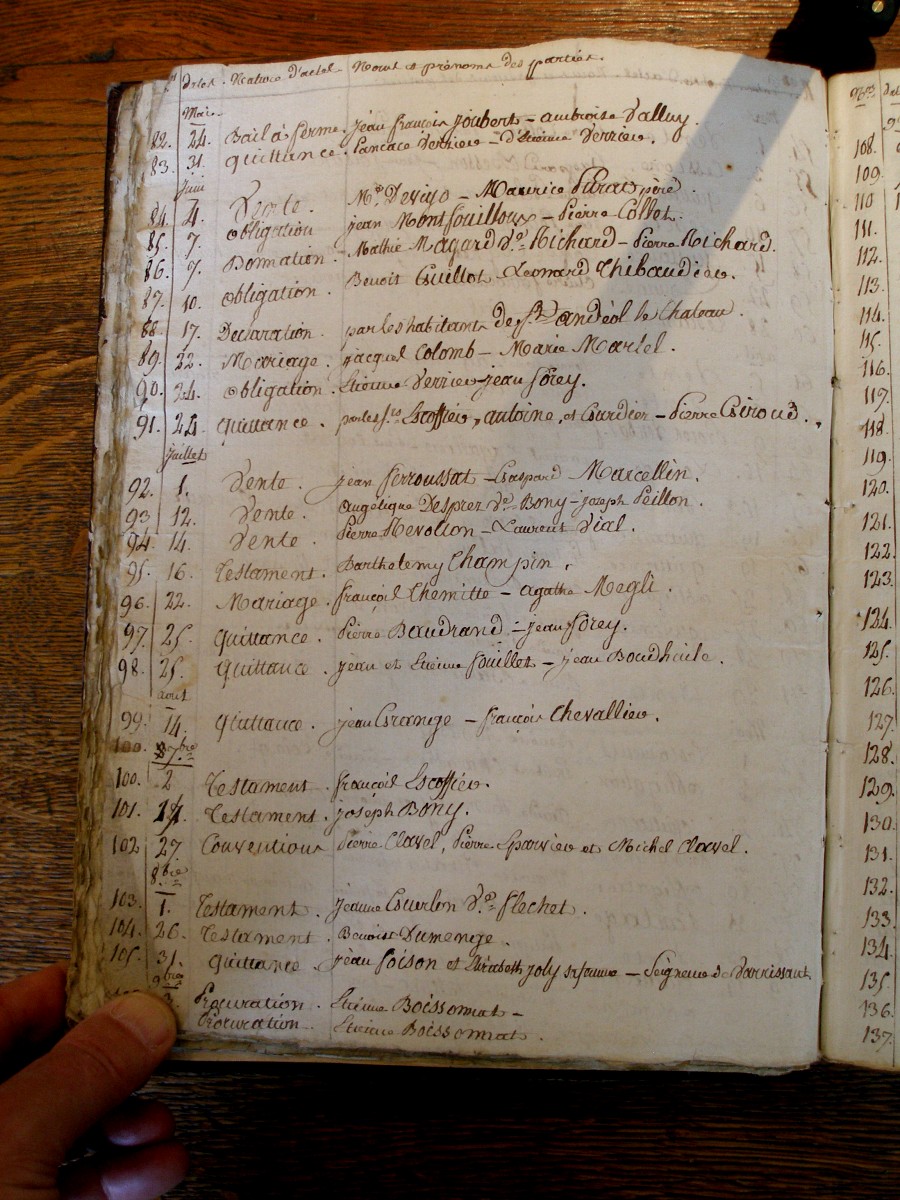 dates. Nature d'actes Noms et prénoms des parties.
Mai.
82. 24. Bail à ferme. jean françois joubert - ambroise Valluy.
83. 31. quittance. Pancace Verrier - d'Etienne Verrier.
juin
84. 4. Vente. Mr. - Maurice père.
85. 7. obligation jean Montfouilloux - Pierre Collet.
86. 7. Donnation. Mathie Magard Ve. Richard - Pierre Richard.
87. 10. obligation. Benoit Guillot Leonard Thibaudier.
88. 17. Declaration par les habitants de St. andéol le Chateau.
89. 22. Mariage. jacques Colomb - Marie Martel.
90. 24. obligation. Etienne Verrier - jean forey.
91. 24. quittance. par les frs Escoffier, antoine, et Gurdier - Pierre Giroud.
juillet
92. 1. Vente. jean ferroussat - Gaspard Marcellin.
93 12. Vente. angelique Desprez Ve. Bony - joseph Peillon.
94. 14. Vente. Pierre Revollon - Laurent Vial.
95. 16. Testament. Barthelemy Champin.
96. 22. Mariage. françois Chemitte - agathe Megli.
97. 25. quittance. Pierre Baudrand - jean forey.
98. 25. quittance. jean et Etienne fouillet - jean Boudhuile.
aout
99. 14. quittance. jean Grange - françois Chevallier.
100. 7.bre
100. 2 Testament. françois Escoffier.
101. 14. Testament. joseph Bony.
102 27. Conventions Pierre Clavel, Pierre Sparvier et Michel Clavel.
8.bre
103. 1. Testament. jeanne Guerlon Ve. flechet.
104. 26. Testament. Benoist Dumenge.
105. 31. quittance. jean foison et Elisabeth joly sa femme - Seigneur de Varrissant
9bre
Procuration. Etienne Boissonnat -
Procuration. Etienne Boissonnat.
Nos.
108.
109.
110
111.
112.
113.
114.
115.
116.
117.
118
119.
120.
121.
122.
123.
124.
125.
126.
127.
128.
129.
130.
131.
132.
133.
134.
135.
136.
137.